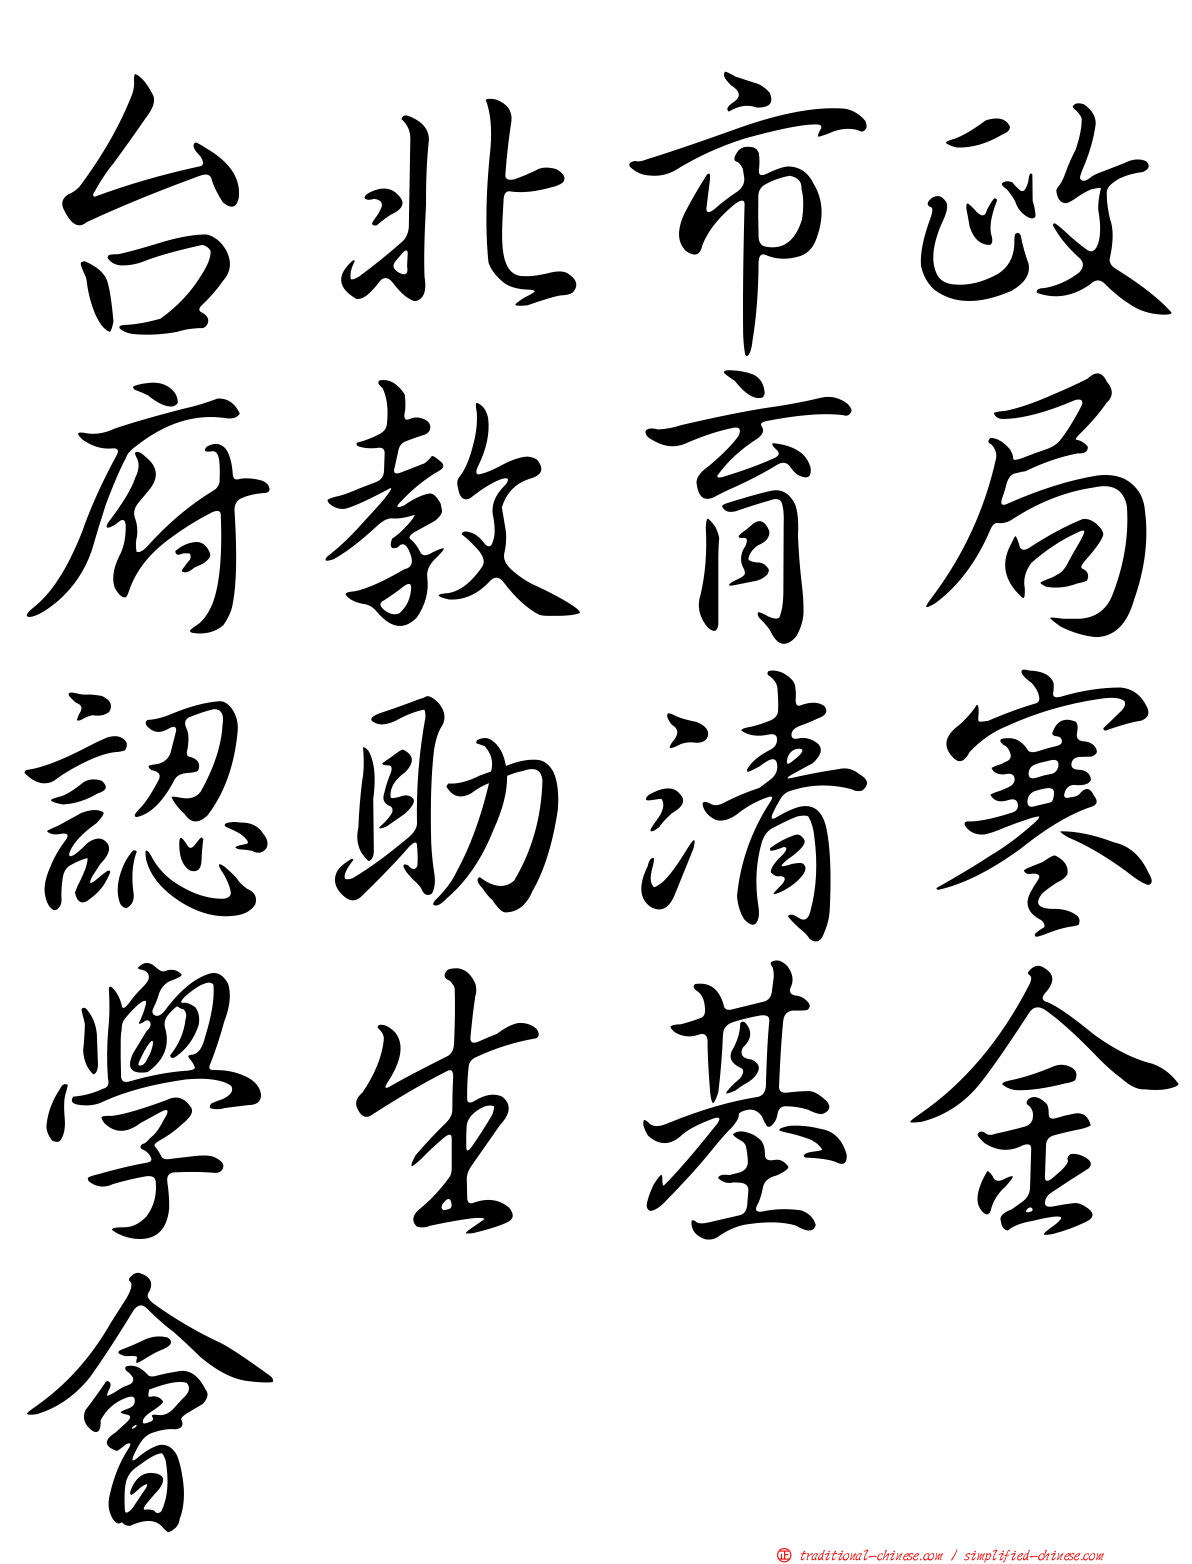 台北市政
府教育局
認助清寒
學生基金
會
正 traditional-chinese.com / simplified-chinese.com